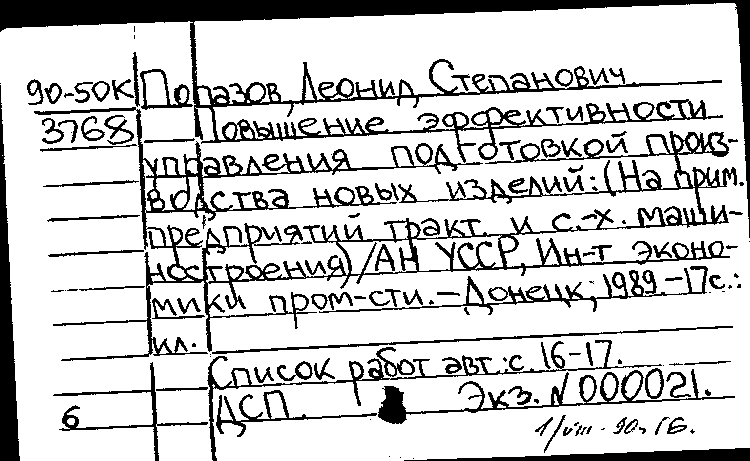 90-50К Попазов, Леонид Степанович
3768 Повышение эффективности
управления подготовкой произ-
водства новых изделий: (На прим.
предприятий тракт. и с.-х. маши-
ностроения) / АН УССР, Ин-т эконо-
мики пром-сти. – Донецк, 1989. – 17с.:
ил.
Список работ авт.: с. 16-17.
6 ДСП. Экз. N 000021.